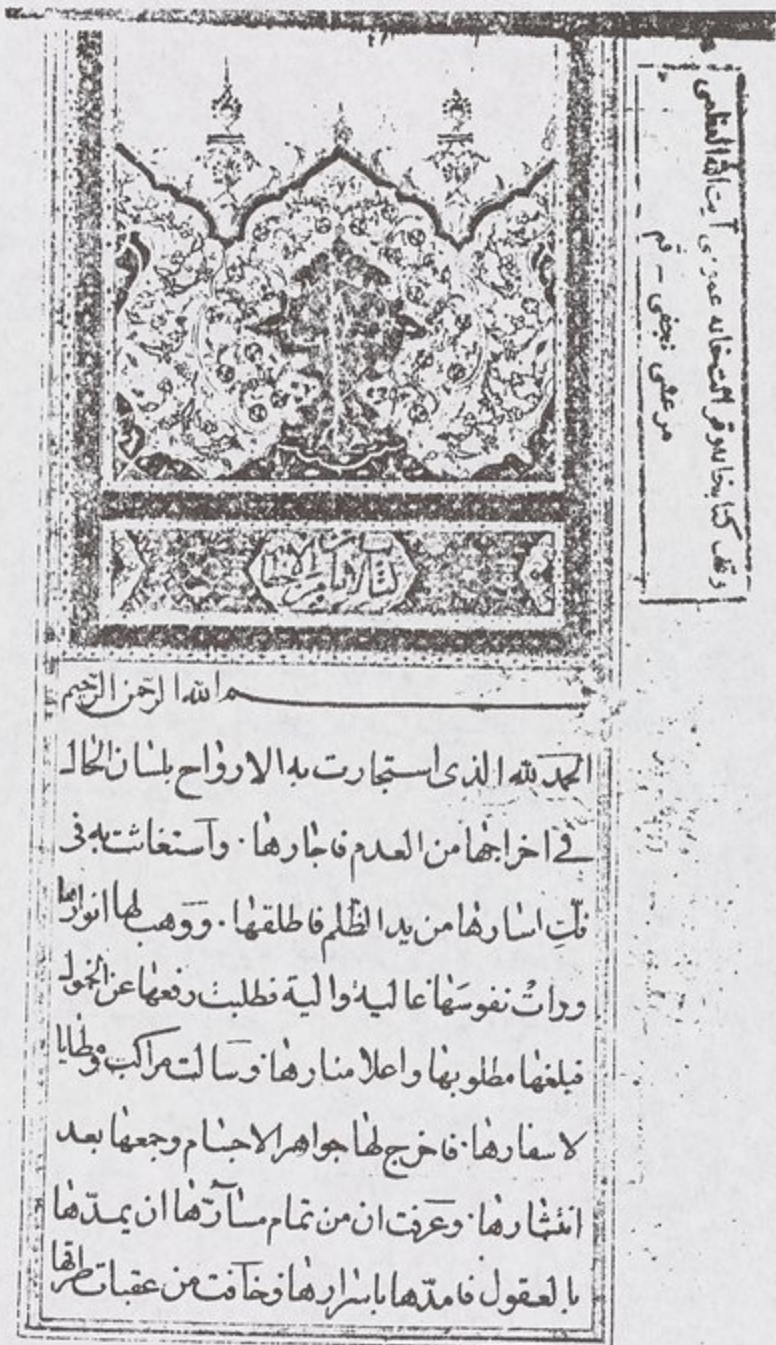 وقف کتابخانه و قرائتخانه عمومی آیت الله العظمی
مرعشی نجفی - قم
كتاب الامان من الاخطار
بسم الله الرحمن الرحيم
الحمد لله الذى استجارت به الارواح بلسان الحال
فى اخراجها من العدم فاجارها. واستغاثت به فى
فك اسارها من يد الظلم فاطلقها. ووهب لها انوارها
ورات نفوسها عالية والية فطلبت رفعها عن الخمول
فبلغها مطلوبها واعلا منارها. وسالت مراكب ومطايا
لاسفارها. فاخرج لها جواهر الاجسام وجمعها بعد
انتثارها. وعرفت ان من تمام مسآرّها ان يمدّها
بالعقول فامدّها باسرارها وخافت من عقبات طرقها